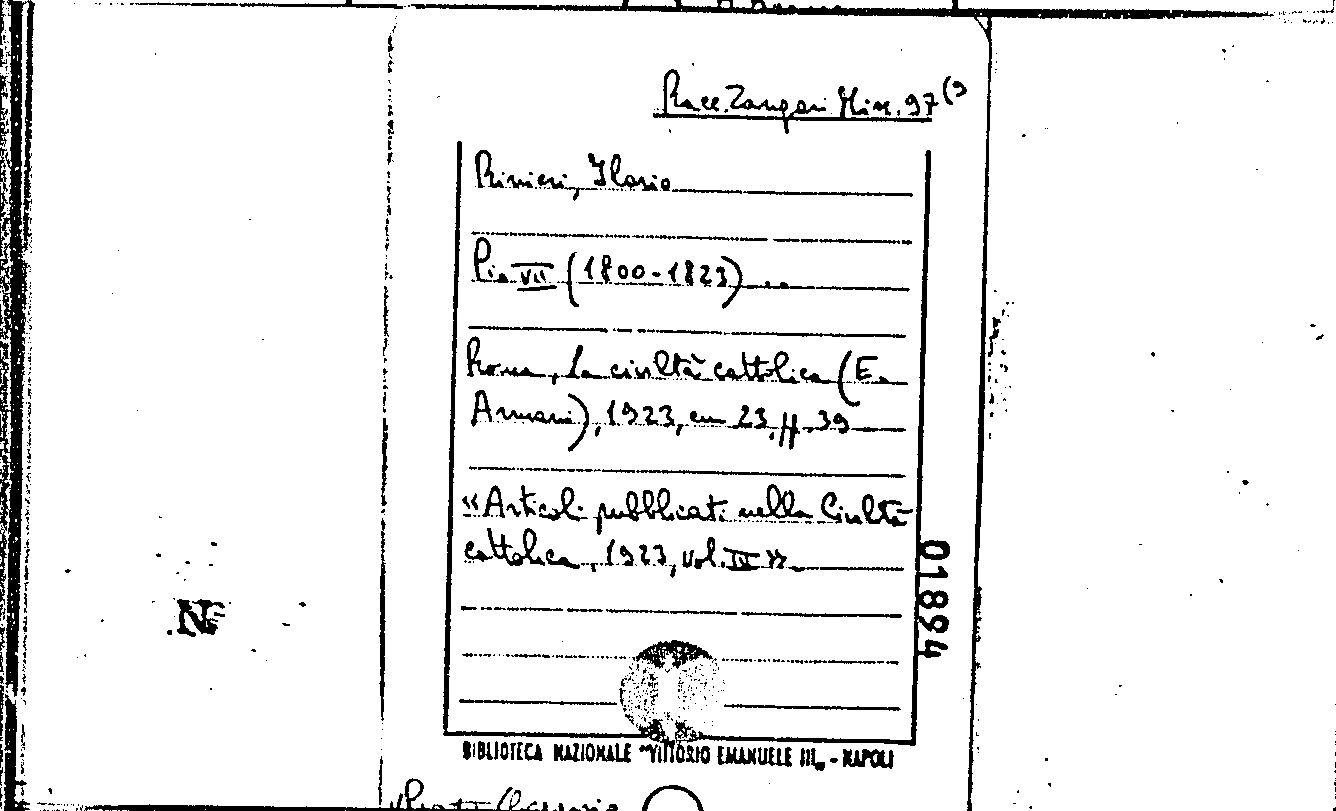 Racc. Zangari Misc. 97(9
Rinieri, Ilario
Pio VII (1800-1823)...
Roma, La civiltà cattolica (E.
Armani), 1923, cm 23, pp. 39
«Articoli pubblicati nella Civiltà
cattolica, 1923, vol. IV».
01894
BIBLIOTECA NAZIONALE "VITTORIO EMANUELE III„ - NAPOLI